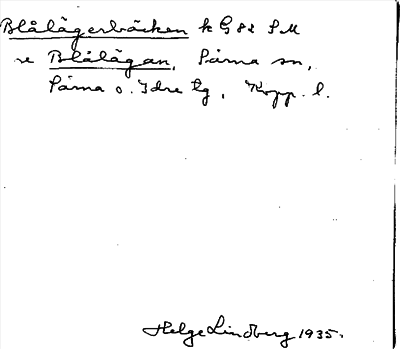 Blålägerbäcken k G 82 S M
se Blålägan, Särna sn,
Särna o. Idre tg, Kopp. l.
Helge Lindberg 1935.